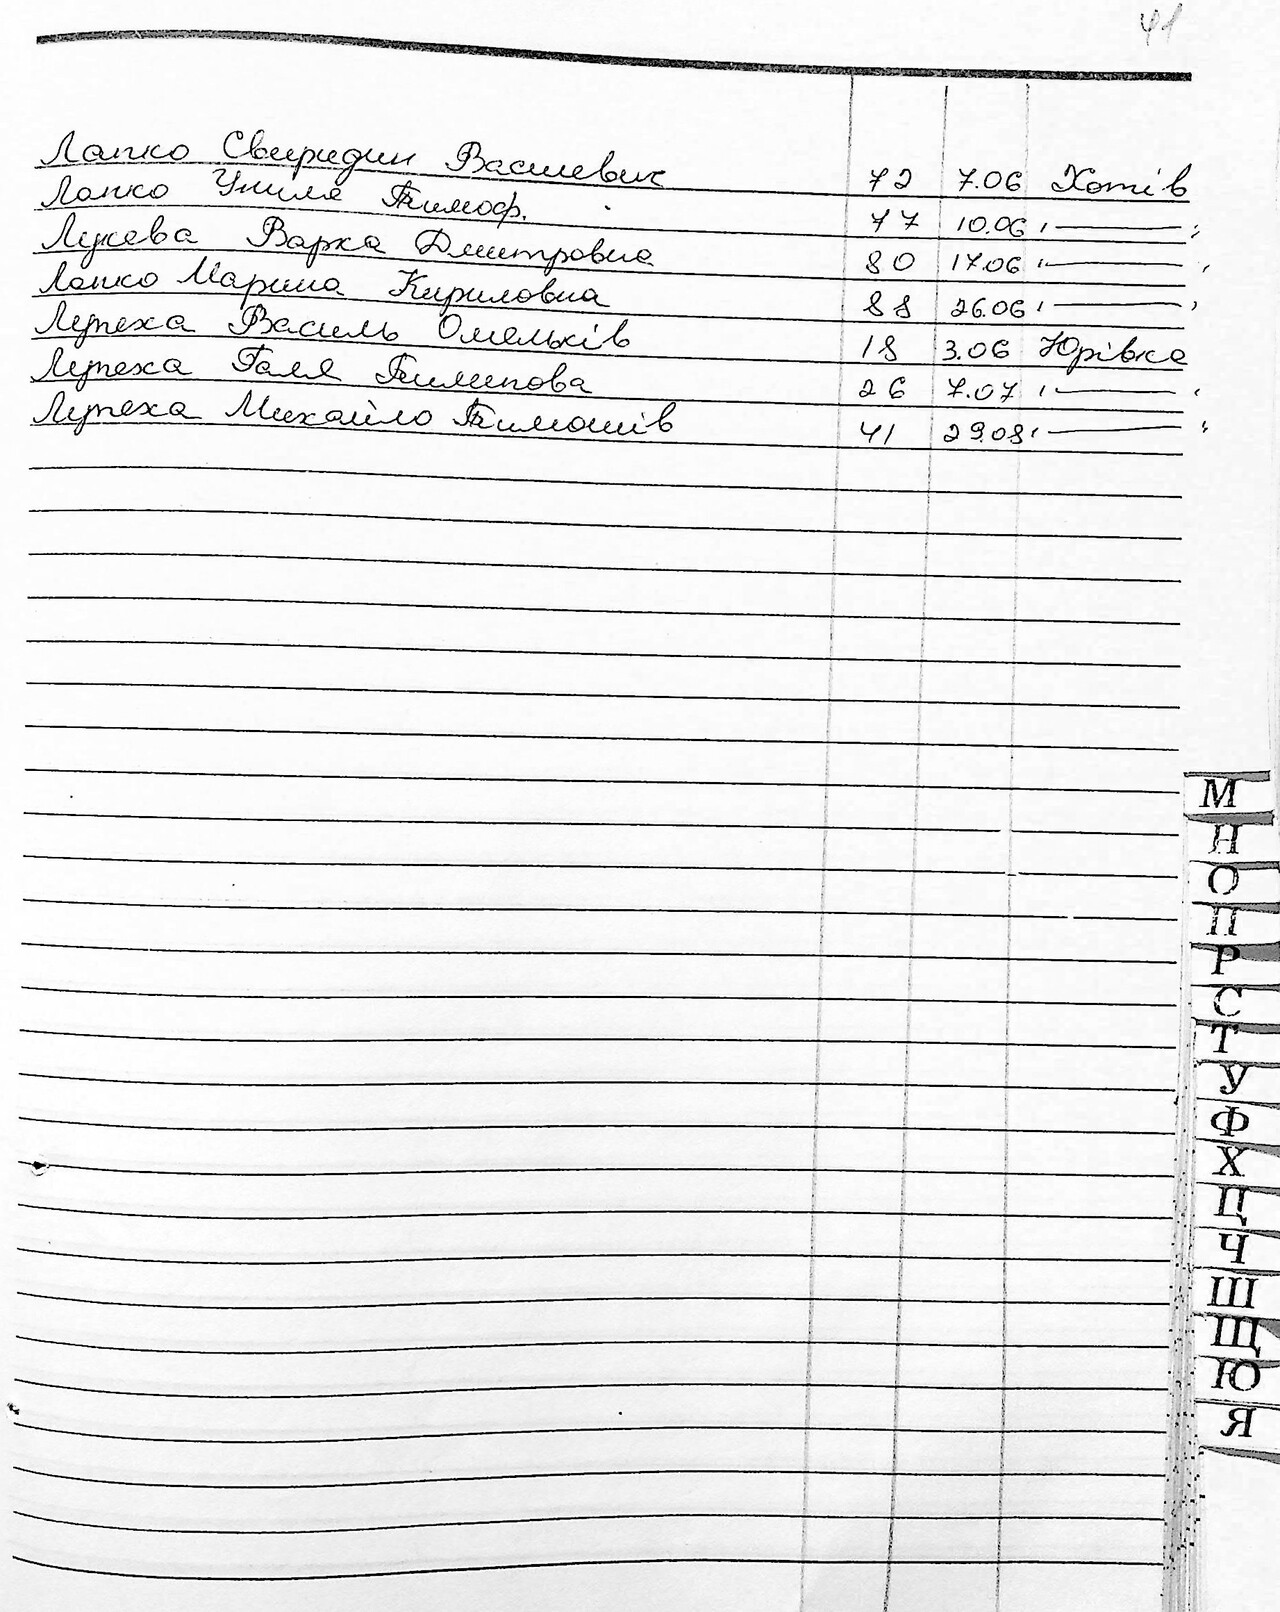 41
Лапко Свиридин Василевич 72 7.06 Хотів
Лапко Униля Тимоф. 77 10.06 "—"
Лукева Варка Дмитровна 80 17.06 "—"
Лапко Марина Кириловна 88 26.06 "—"
Лепеха Василь Омельків 18 3.06 Юрівка
Лепеха Галя Пилипова 26 7.07 "—"
Лепеха Михайло Тимошів 41 29.08 "—"
М
Н
О
П
Р
С
Т
У
Ф
Х
Ц
Ч
Ш
Щ
Ю
Я